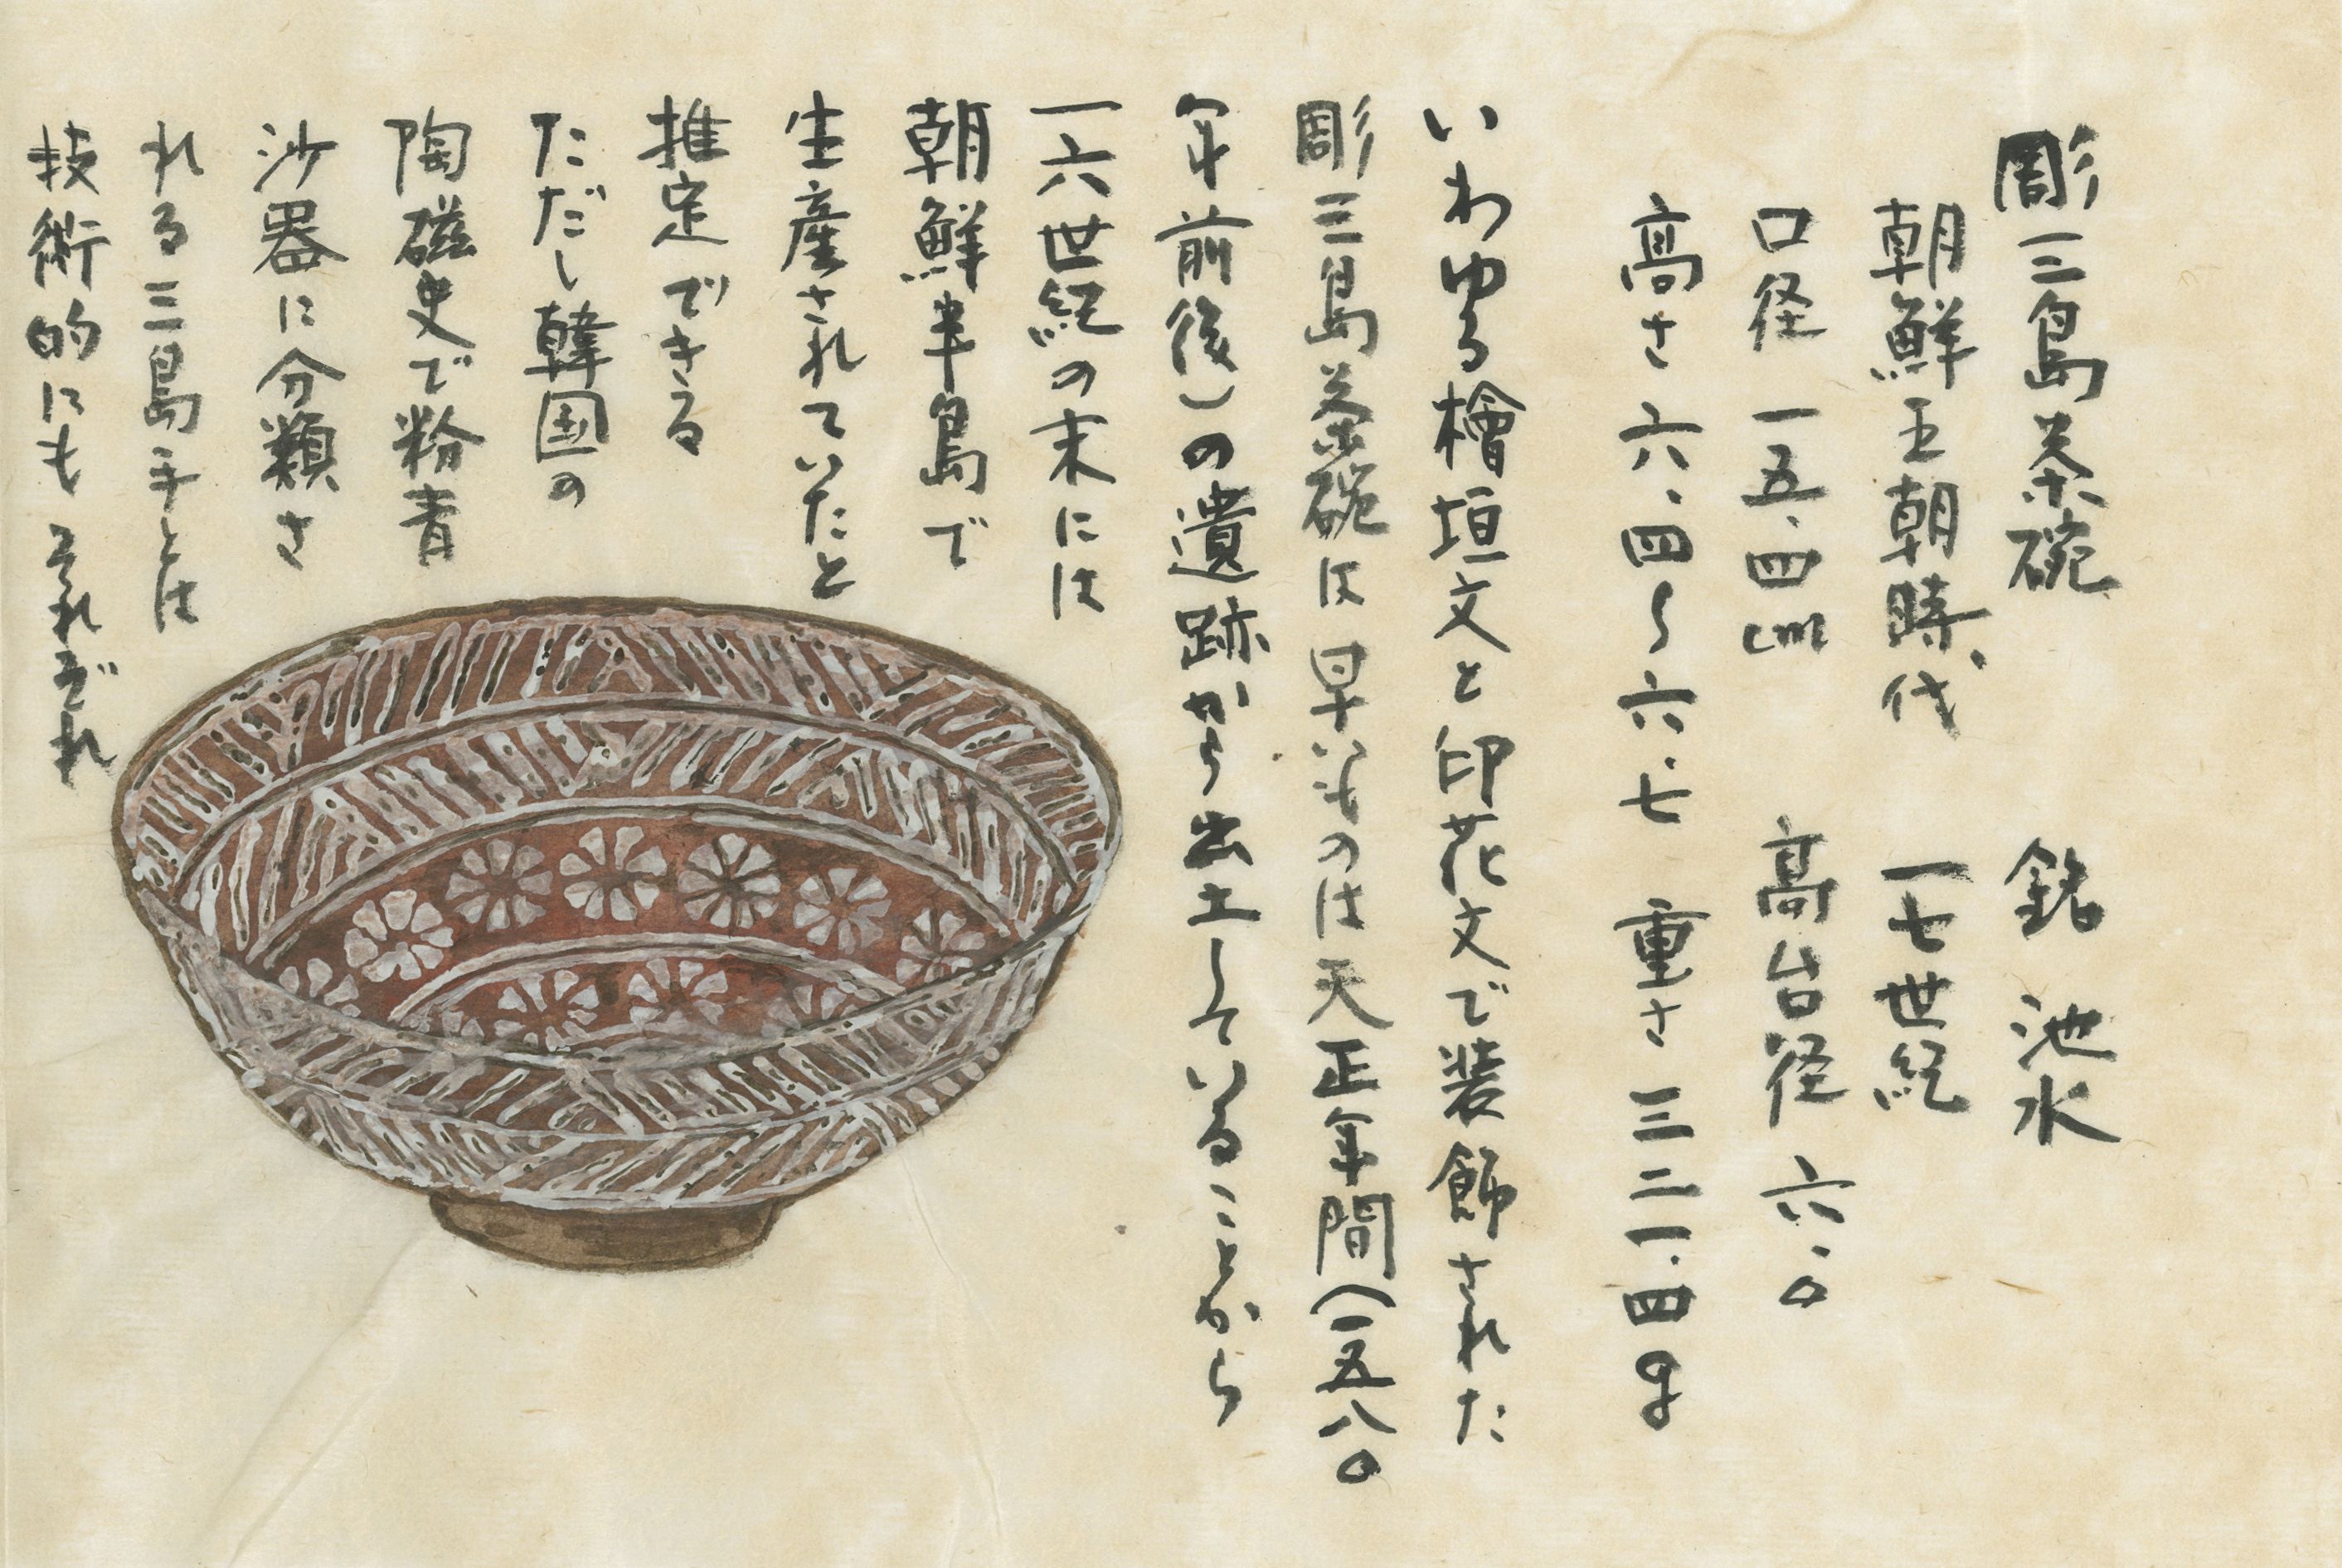 彫三島茶碗 銘 池水
朝鮮王朝時代 一七世紀
口径 一五.四cm 高台径 六.〇
高さ 六.四〜六.七 重さ 三二一.四g
いわゆる檜垣文と印花文で装飾された
彫三島茶碗は早いものは天正年間(一五八〇
年前後)の遺跡から出土していることから
一六世紀の末には
朝鮮半島で
生産されていたと
推定できる
ただし韓国の
陶磁史で粉青
沙器に分類さ
れる三島手とは
技術的にもそれぞれ